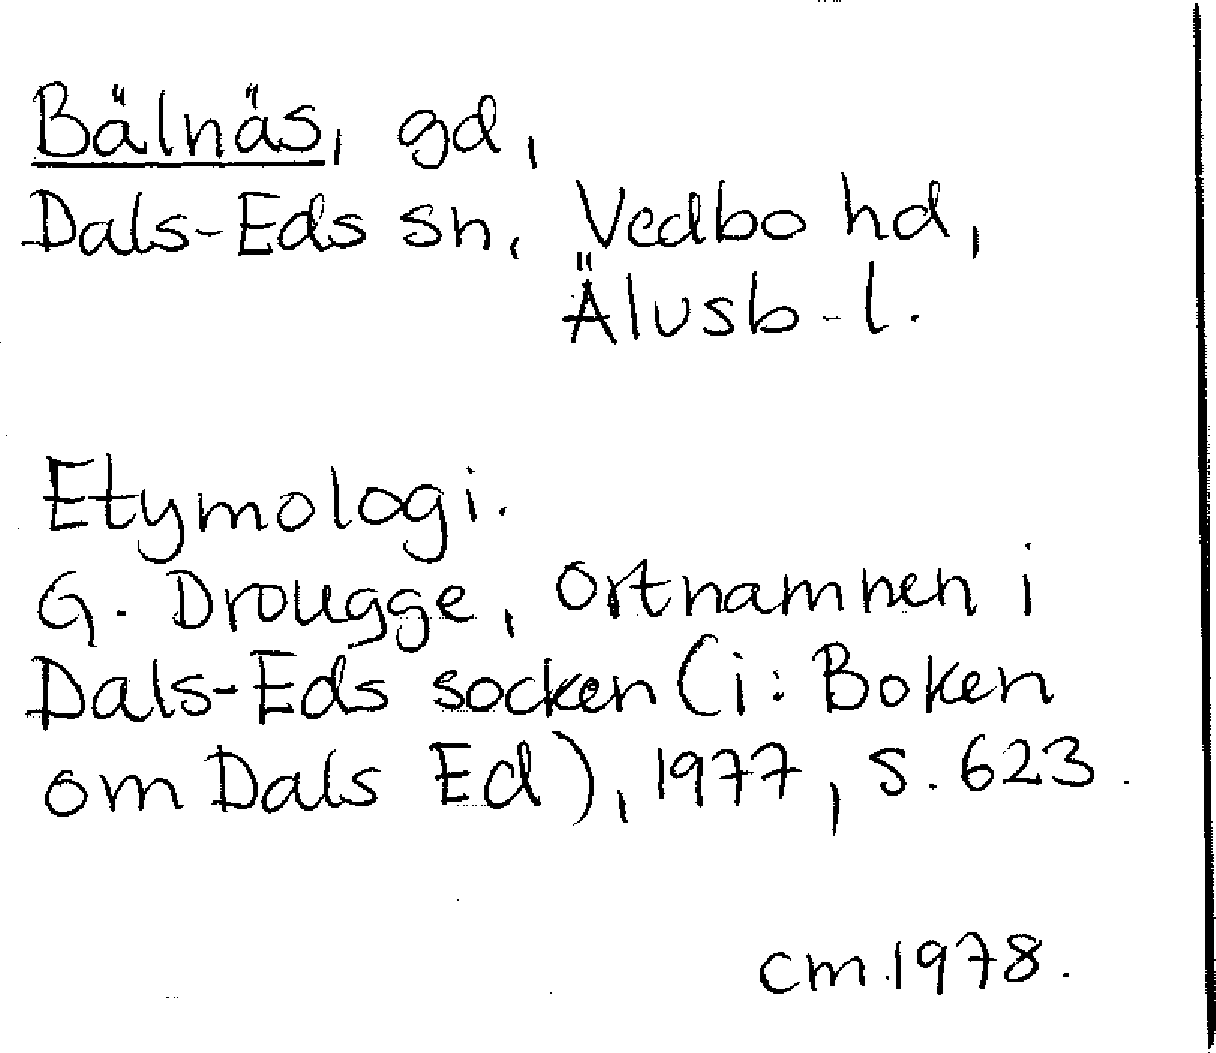 Bälnäs, gd,
Dals-Eds sn, Vedbo hd,
Älvsb-l.
Etymologi.
G. Drougge, Ortnamnen i
Dals-Eds socken (i: Boken
om Dals Ed), 1977, s. 623.
cm 1978.